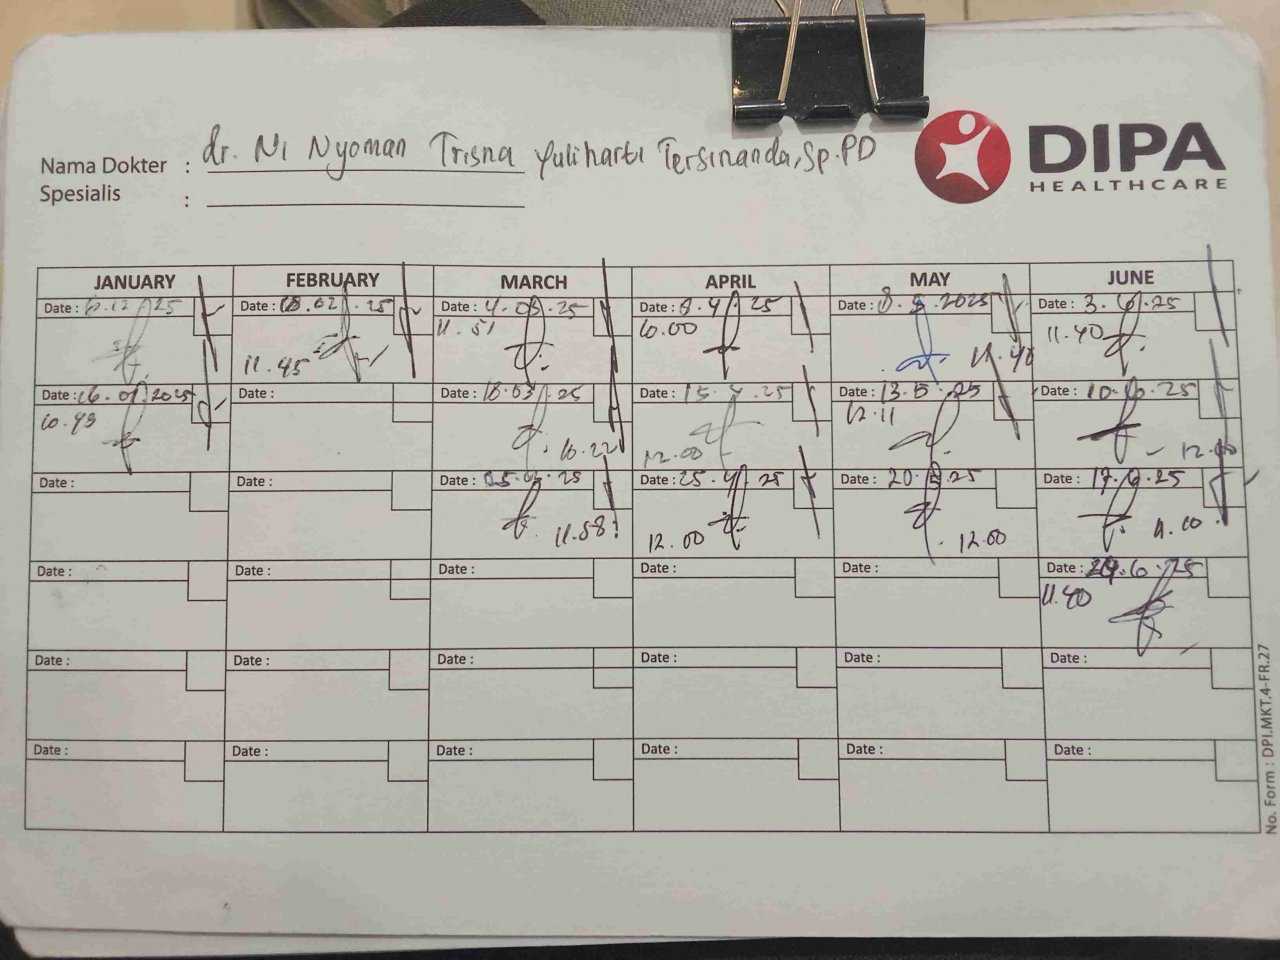 DIPA
HEALTHCARE
Nama Dokter : dr. Ni Nyoman Trisna Yuliharti Tersinanda, Sp.PD
Spesialis :
JANUARY FEBRUARY MARCH APRIL MAY JUNE
Date : 25 Date : 18.02.25 Date : 4.03.25 Date : 25 Date : 8.5.2025 Date : 3.6.25
11.45 11.51 10.00 11.40 11.40
Date : 16.01.2025 Date : Date : 18.03.25 Date : 15.4.25 Date : 13.5.25 Date : 10.6.25
10.43 10.22 12.00 12.11 12.00
Date : Date : Date : 25 Date : 25.4.25 Date : 20.5.25 Date : 17.6.25
11.58 12.00 12.00 11.00
Date : Date : Date : Date : Date : Date : 24.6.25
11.40
Date : Date : Date : Date : Date : Date :
Date : Date : Date : Date : Date : Date :
No. Form : DPI.MKT.4-FR.27